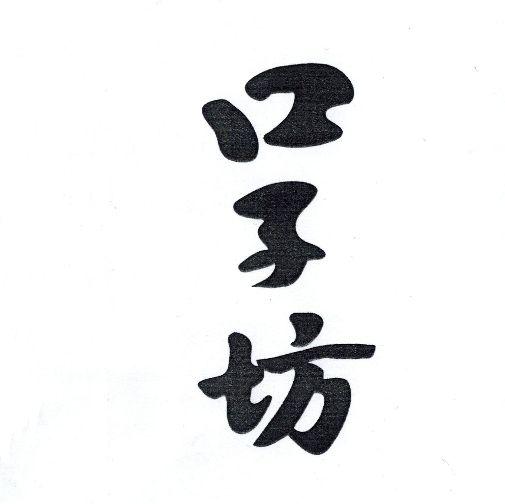 口子坊